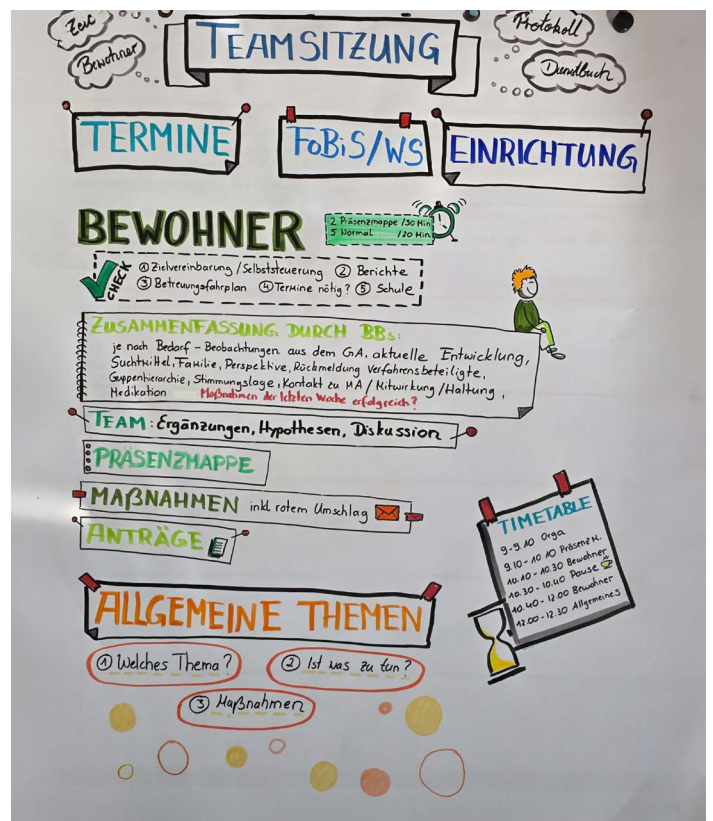 Zeit
Bewohner
TEAMSITZUNG
Protokoll
Dienstbuch
TERMINE
FoBiS/WS
EINRICHTUNG
BEWOHNER
2 Präsenzmappe /30 Min
5 Normal /20 Min
CHECK
① Zielvereinbarung / Selbststeuerung ② Berichte
③ Betreuungsfahrplan ④ Termine nötig? ⑤ Schule
ZUSAMMENFASSUNG DURCH BBs:
je nach Bedarf - Beobachtungen aus dem GA, aktuelle Entwicklung,
Suchtmittel, Familie, Perspektive, Rückmeldung Verfahrensbeteiligte,
Guppenhierarchie, Stimmungslage, Kontakt zu MA / Mitwirkung / Haltung,
Medikation Maßnahmen der letzten Woche erfolgreich?
TEAM: Ergänzungen, Hypothesen, Diskussion
PRÄSENZMAPPE
MAßNAHMEN inkl. rotem Umschlag
ANTRÄGE
TIMETABLE
9-9.10 Orga
9.10-10.10 Präsenz M.
10.10-10.30 Bewohner
10.30-10.40 Pause
10.40-12.00 Bewohner
12.00-12.30 Allgemeines
ALLGEMEINE THEMEN
① Welches Thema?
② Ist was zu tun?
③ Maßnahmen